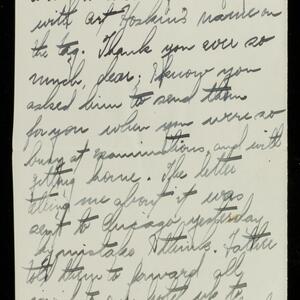 with Art Hoskin's name on
the tag. Thank you ever so
much, dear; I know you
asked him to send them
for you when you were so
busy at examinations, and with
getting home. The letter
telling me about it was
sent to Chicago yesterday
by mistake I think. Father
told them to forward all